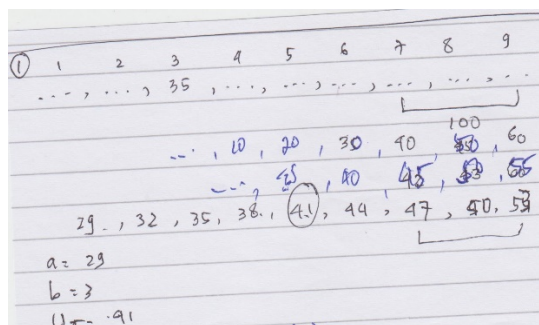 ① 1 2 3 4 5 6 7 8 9
..., ..., 35, ..., ..., ..., ..., ..., ...
100
..., 10, 20, 30, 40, 50, 60
..., 40, 45, 55
29, 32, 35, 38, 41, 44, 47, 50, 53
a = 29
b = 3
U5 = 41